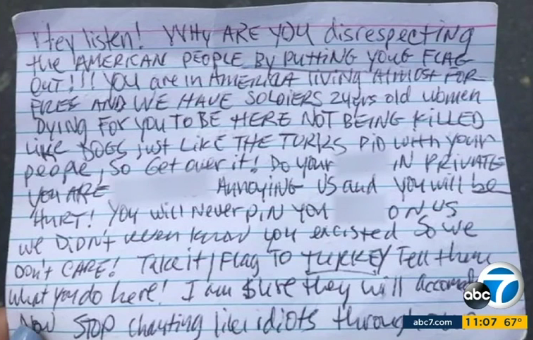 Hey listen! WHY ARE YOU disrespecting
the AMERICAN PEOPLE BY PUTTING YOUR FLAG
OUT!!! YOU are in AMERICA living Almost FOR
FREE AND WE HAVE SOLDIERS 24yrs old women
DYING FOR YOU TO BE HERE NOT BEING KILLED
LIKE DOGS just LIKE THE TURKS DID with your
people, so Get over it! Do your IN PRIVATE
YOU ARE ANNOYING US and you will be
HURT! You will Never PIN YOU ON US
we DIDN'T even know you excisted So we
DON'T CARE! Take it/Flag TO TURKEY Tell them
what you do here! I am sure they will
Now STOP chanting like idiots
abc 7
abc7.com 11:07 67°